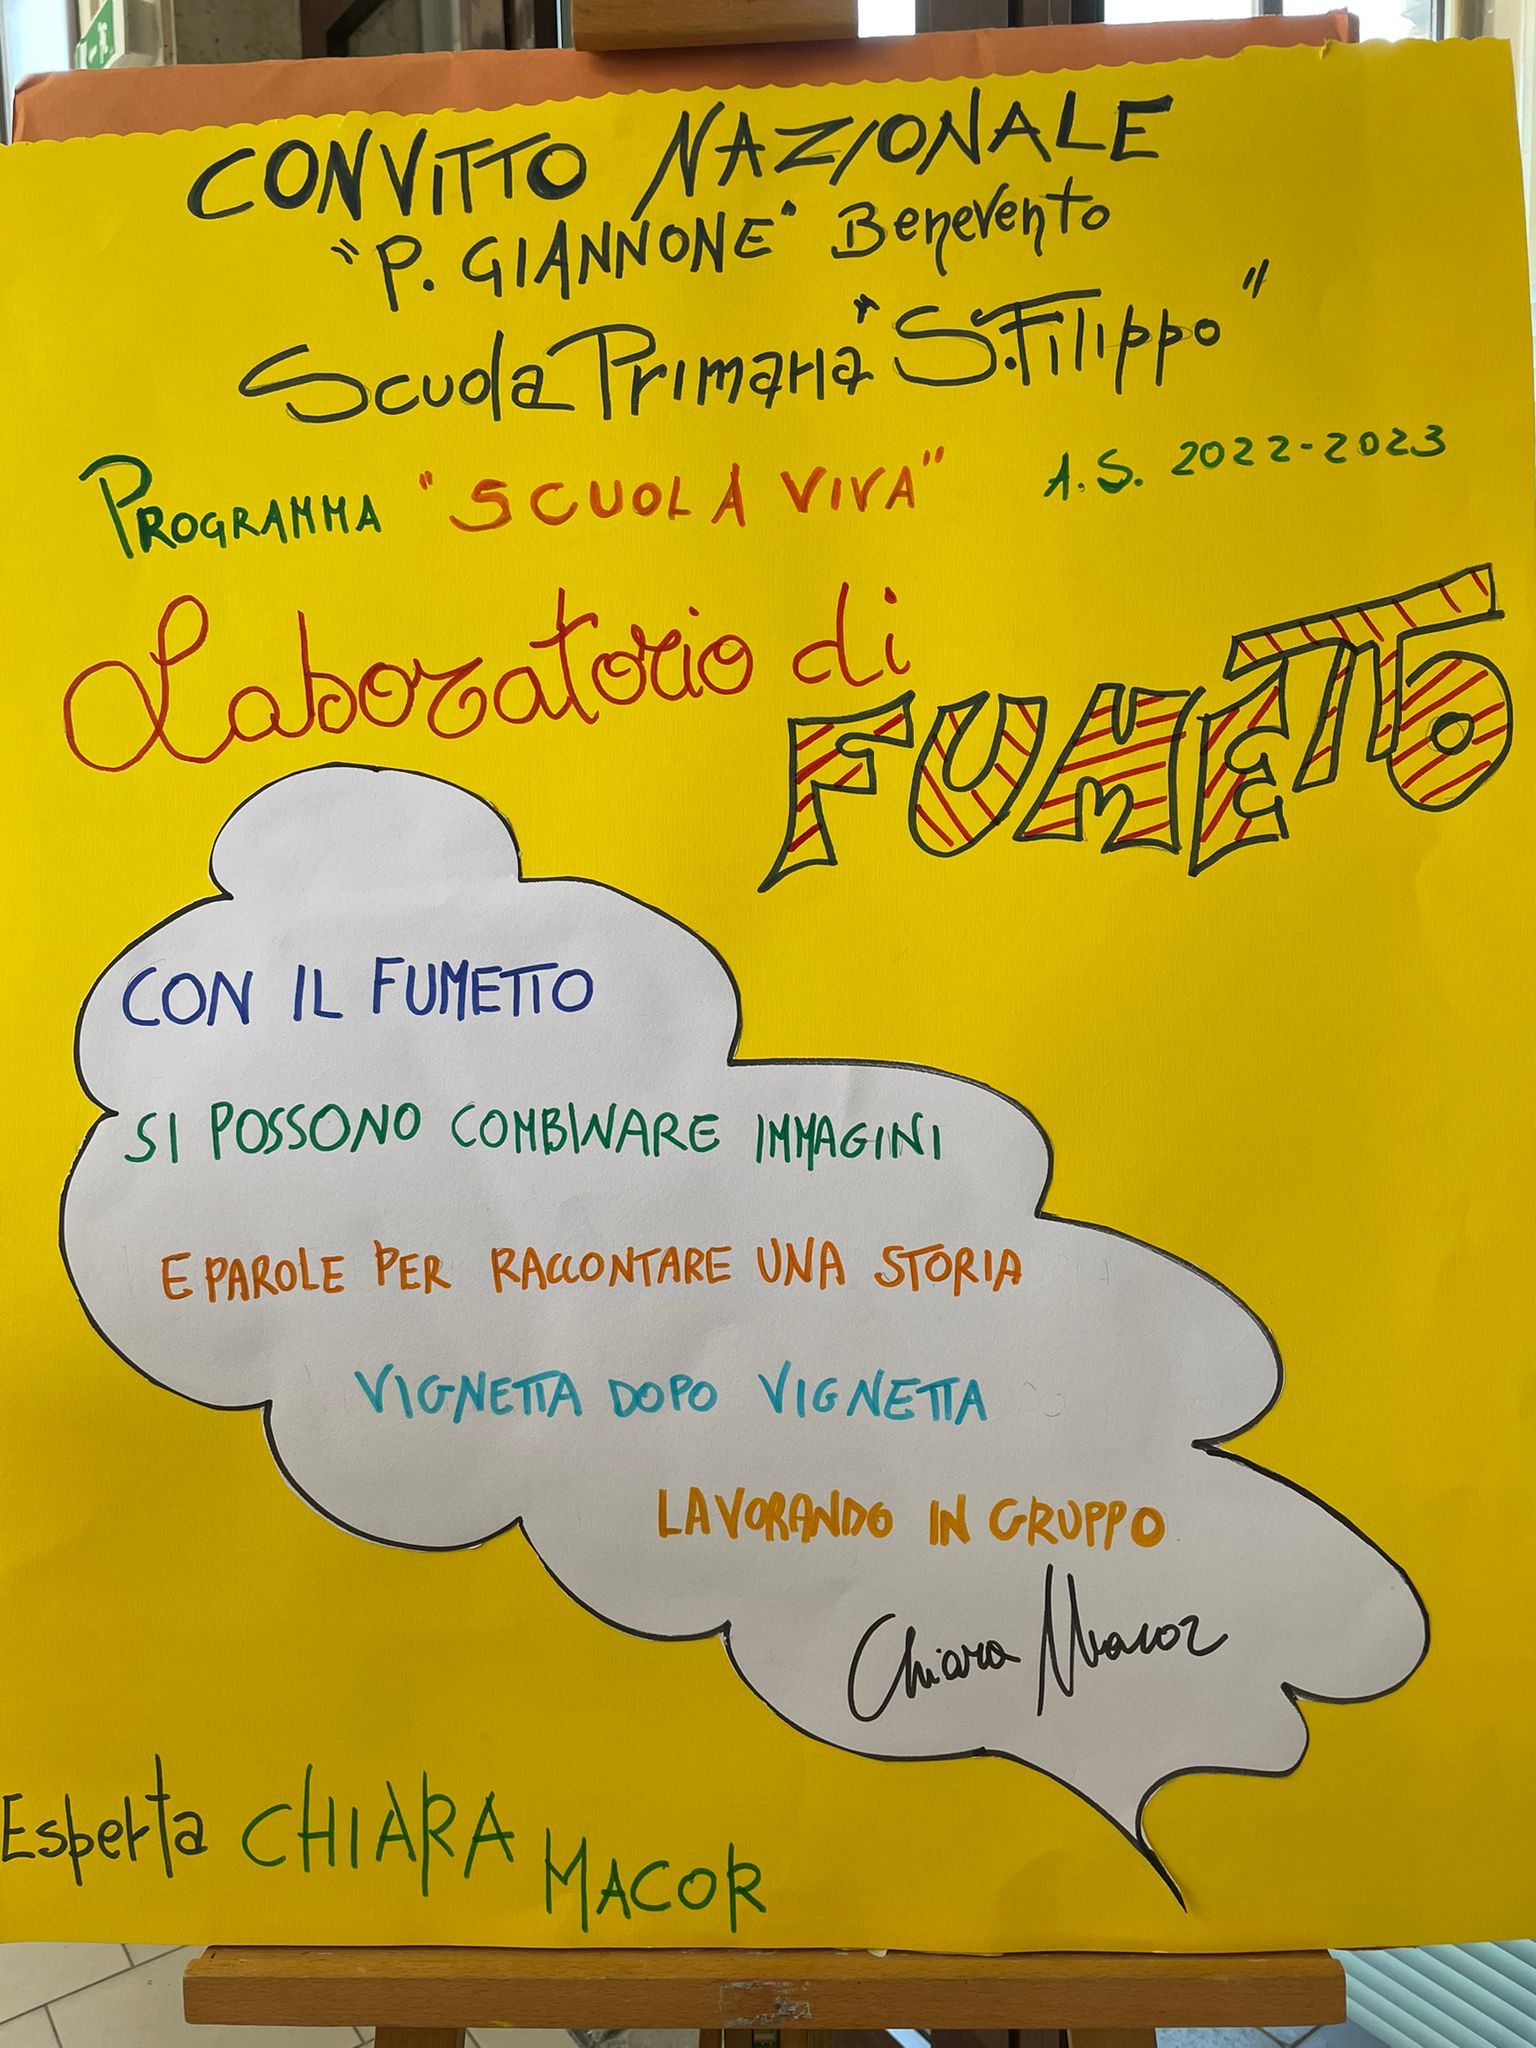 CONVITTO NAZIONALE
"P. GIANNONE" Benevento
Scuola Primaria "S. Filippo"
PROGRAMMA "SCUOLA VIVA" A.S. 2022-2023
Laboratorio di
FUMETTO
CON IL FUMETTO
SI POSSONO COMBINARE IMMAGINI
E PAROLE PER RACCONTARE UNA STORIA
VIGNETTA DOPO VIGNETTA
LAVORANDO IN GRUPPO
Chiara Macor
Esperta CHIARA MACOR